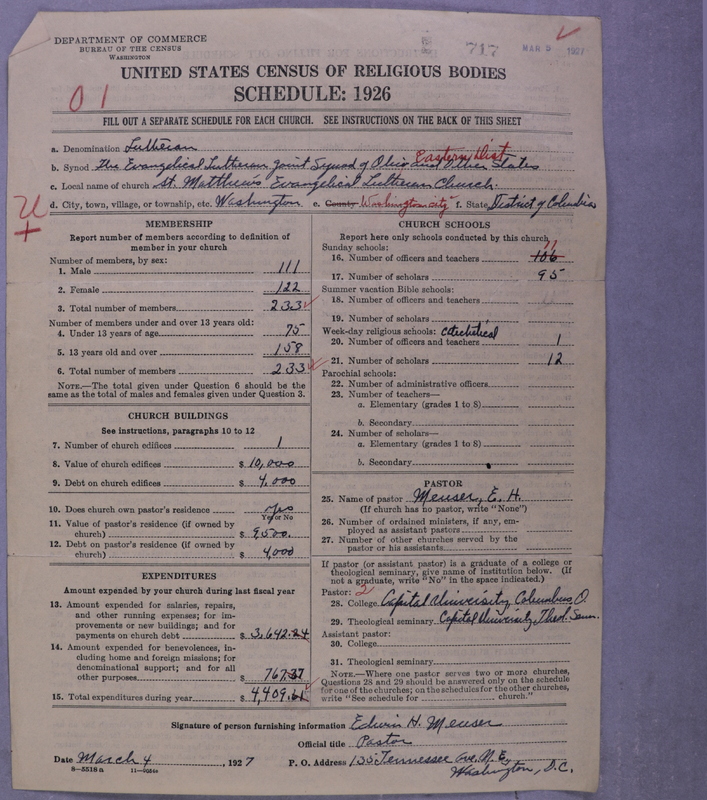 DEPARTMENT OF COMMERCE
BUREAU OF THE CENSUS
WASHINGTON
717
MAR 5 1927
UNITED STATES CENSUS OF RELIGIOUS BODIES
SCHEDULE: 1926
01
FILL OUT A SEPARATE SCHEDULE FOR EACH CHURCH. SEE INSTRUCTIONS ON THE BACK OF THIS SHEET
a. Denomination Lutheran
Eastern Dist
b. Synod the Evangelical Lutheran Joint Synod of Ohio and Other States
c. Local name of church St. Matthew's Evangelical Lutheran Church.
d. City, town, village, or township, etc. Washington e. County Washington city f. State District of Columbia
U
MEMBERSHIP
Report number of members according to definition of
member in your church
Number of members, by sex:
1. Male 111
2. Female 122
3. Total number of members 233
Number of members under and over 13 years old:
4. Under 13 years of age 75
5. 13 years old and over 158
6. Total number of members 233
NOTE.—The total given under Question 6 should be the
same as the total of males and females given under Question 3.
CHURCH BUILDINGS
See instructions, paragraphs 10 to 12
7. Number of church edifices 1
8. Value of church edifices $ 10,000
9. Debt on church edifices $ 4,000
10. Does church own pastor's residence yes
Yes or No
11. Value of pastor's residence (if owned by
church) $ 9500.
12. Debt on pastor's residence (if owned by
church) $ 4,000
EXPENDITURES
Amount expended by your church during last fiscal year
13. Amount expended for salaries, repairs,
and other running expenses; for im-
provements or new buildings; and for
payments on church debt $ 3,642.24
14. Amount expended for benevolences, in-
cluding home and foreign missions; for
denominational support; and for all
other purposes $ 767.37
15. Total expenditures during year $ 4,409.61
CHURCH SCHOOLS
Report here only schools conducted by this church
Sunday schools: 11
16. Number of officers and teachers 106
17. Number of scholars 95
Summer vacation Bible schools:
18. Number of officers and teachers
19. Number of scholars
Week-day religious schools: catechetical
20. Number of officers and teachers 1
21. Number of scholars 12
Parochial schools:
22. Number of administrative officers
23. Number of teachers—
a. Elementary (grades 1 to 8)
b. Secondary
24. Number of scholars—
a. Elementary (grades 1 to 8)
b. Secondary
PASTOR
25. Name of pastor Meuser, E. H.
(If church has no pastor, write "None")
26. Number of ordained ministers, if any, em-
ployed as assistant pastors
27. Number of other churches served by the
pastor or his assistants
If pastor (or assistant pastor) is a graduate of a college or
theological seminary, give name of institution below. (If
not a graduate, write "No" in the space indicated.)
Pastor: 2
28. College Capital University, Columbus O.
29. Theological seminary Capital University, Theol. Sem.
Assistant pastor:
30. College
31. Theological seminary
NOTE.—Where one pastor serves two or more churches,
Questions 28 and 29 should be answered only on the schedule
for one of the churches; on the schedules for the other churches,
write "See schedule for church."
Signature of person furnishing information Edwin H. Meuser
Official title Pastor
Date March 4, 1927 P. O. Address 135 Tennessee Ave. N.E.,
Washington, D.C.
8—5518a